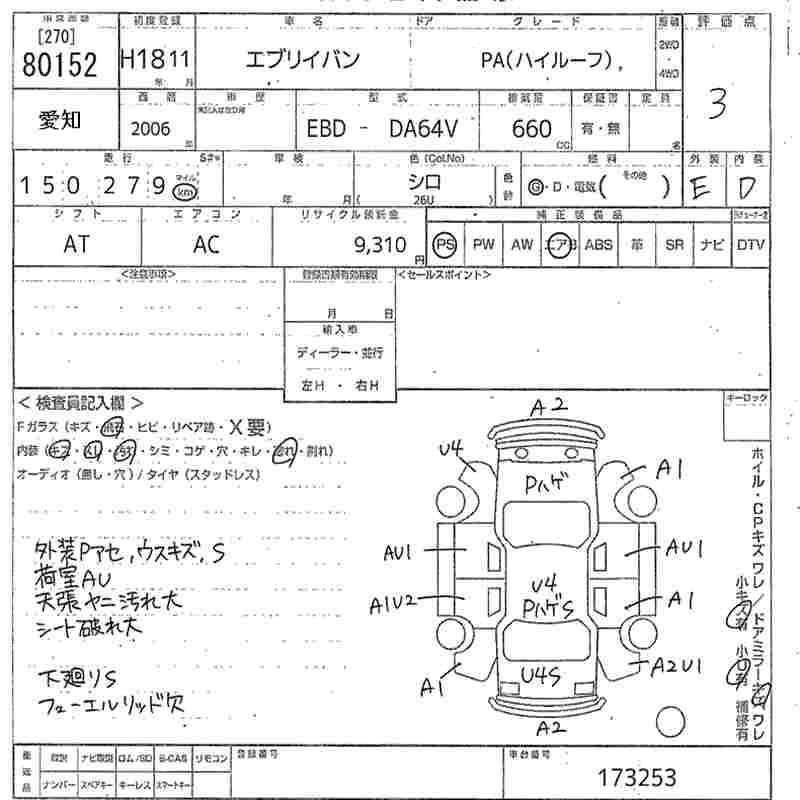 [270]
80152
初度登録
H18 11
年 月
車名
エブリイバン
ドア
グレード
PA(ハイルーフ),
2WD
4WD
評価点
3
愛知
西暦
2006
年
車歴
型式
EBD - DA64V
排気量
660
CC
保証書
有・無
定員
名
走行
S#*
150279
マイル
km
車検
年 月
色(Col.No)
シロ
( 26U )
色替
燃料
G・D・電気( その他 )
外装
E
内装
D
シフト
AT
エアコン
AC
リサイクル預託金
9,310
円
純正装備品
PS PW AW エアB ABS 革 SR ナビ DTV
<注意事項>
登録書類有効期限
月 日
<セールスポイント>
輸入車
ディーラー・並行
左H ・ 右H
<検査員記入欄>
Fガラス(キズ・飛石・ヒビ・リペア跡・X要)
内装(キズ・スレ・汚れ・シミ・コゲ・穴・キレ・割れ)
オーディオ(無し・穴)/タイヤ(スタッドレス)
外装Pアセ,ウスキズ,S
荷室AU
天張ヤニ汚れ大
シート破れ大
下廻りS
フューエルリッド欠
キーロック
A2
U4
A1
Pハゲ
AU1
AU1
U4
PハゲS
A1U2
A1
A1
U4S
A2U1
A2
ホイル・CPキズワレ/ドアミラーキズワレ
小キズ有 小凹有 補修有
後送品
取説 ナビ取説 ロム/SD B-CAS リモコン
ナンバー スペアキー キーレス スマートキー
登録番号
車台番号
173253